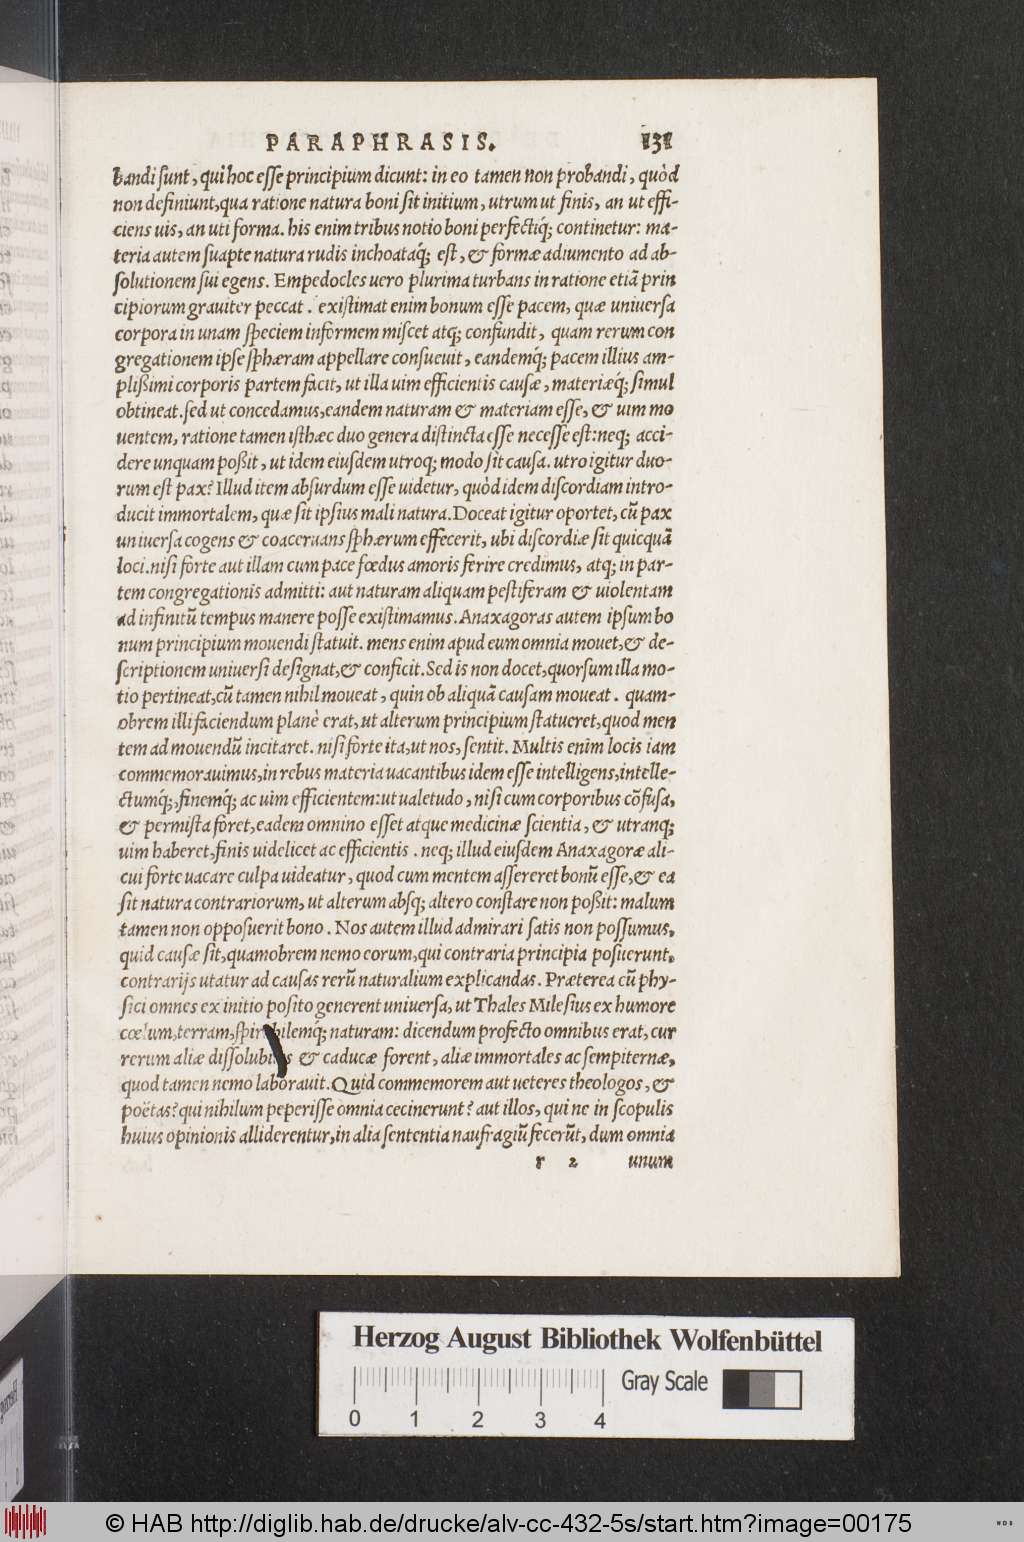 PARAPHRASIS. 131
bandi sunt, qui hoc esse principium dicunt: in eo tamen non probandi, quòd
non definiunt, qua ratione natura boni sit initium, utrum ut finis, an ut effi-
ciens uis, an uti forma. his enim tribus notio boni perfectiq́; continetur: ma-
teria autem suapte natura rudis inchoataq́; est, & formæ adiumento ad ab-
solutionem sui egens. Empedocles uero plurima turbans in ratione etiã prin
cipiorum grauiter peccat. existimat enim bonum esse pacem, quæ uniuersa
corpora in unam speciem informem miscet atq; confundit, quam rerum con
gregationem ipse sphæram appellare consueuit, eandemq́; pacem illius am-
plißimi corporis partem facit, ut illa uim efficientis causæ, materiæq́; simul
obtineat. sed ut concedamus, eandem naturam & materiam esse, & uim mo
uentem, ratione tamen isthæc duo genera distincta esse necesse est: neq; acci-
dere unquam poßit, ut idem eiusdem utroq; modo sit causa. utro igitur duo-
rum est pax? Illud item absurdum esse uidetur, quòd idem discordiam intro-
ducit immortalem, quæ sit ipsius mali natura. Doceat igitur oportet, cũ pax
uniuersa cogens & coaceruans sphærum effecerit, ubi discordiæ sit quicquã
loci. nisi forte aut illam cum pace fœdus amoris ferire credimus, atq; in par-
tem congregationis admitti: aut naturam aliquam pestiferam & uiolentam
ad infinitũ tempus manere posse existimamus. Anaxagoras autem ipsum bo
num principium mouendi statuit. mens enim apud eum omnia mouet, & de-
scriptionem uniuersi designat, & conficit. Sed is non docet, quorsum illa mo-
tio pertineat, cũ tamen nihil moueat, quin ob aliquã causam moueat. quam-
obrem illi faciendum planè erat, ut alterum principium statueret, quod men
tem ad mouendũ incitaret. nisi forte ita, ut nos, sentit. Multis enim locis iam
commemorauimus, in rebus materia uacantibus idem esse intelligens, intelle-
ctumq́;, finemq́; ac uim efficientem: ut ualetudo, nisi cum corporibus cõfusa,
& permista foret, eadem omnino esset atque medicinæ scientia, & utranq;
uim haberet, finis uidelicet ac efficientis. neq; illud eiusdem Anaxagoræ ali-
cui forte uacare culpa uideatur, quod cum mentem assereret bonũ esse, & ea
sit natura contrariorum, ut alterum absq; altero constare non poßit: malum
tamen non opposuerit bono. Nos autem illud admirari satis non possumus,
quid causæ sit, quamobrem nemo eorum, qui contraria principia posuerunt,
contrarijs utatur ad causas rerũ naturalium explicandas. Præterea cũ phy-
sici omnes ex initio posito generent uniuersa, ut Thales Milesius ex humore
cœlum, terram, naturam: dicendum profecto omnibus erat, cur
rerum aliæ & caducæ forent, aliæ immortales ac sempiternæ,
quod tamen nemo laborauit. Quid commemorem aut ueteres theologos, &
poëtas? qui nihilum peperisse omnia cecinerunt? aut illos, qui ne in scopulis
huius opinionis alliderentur, in alia sententia naufragiũ fecerũt, dum omnia
r 2 unum
Herzog August Bibliothek Wolfenbüttel
Gray Scale
0 1 2 3 4
© HAB http://diglib.hab.de/drucke/alv-cc-432-5s/start.htm?image=00175